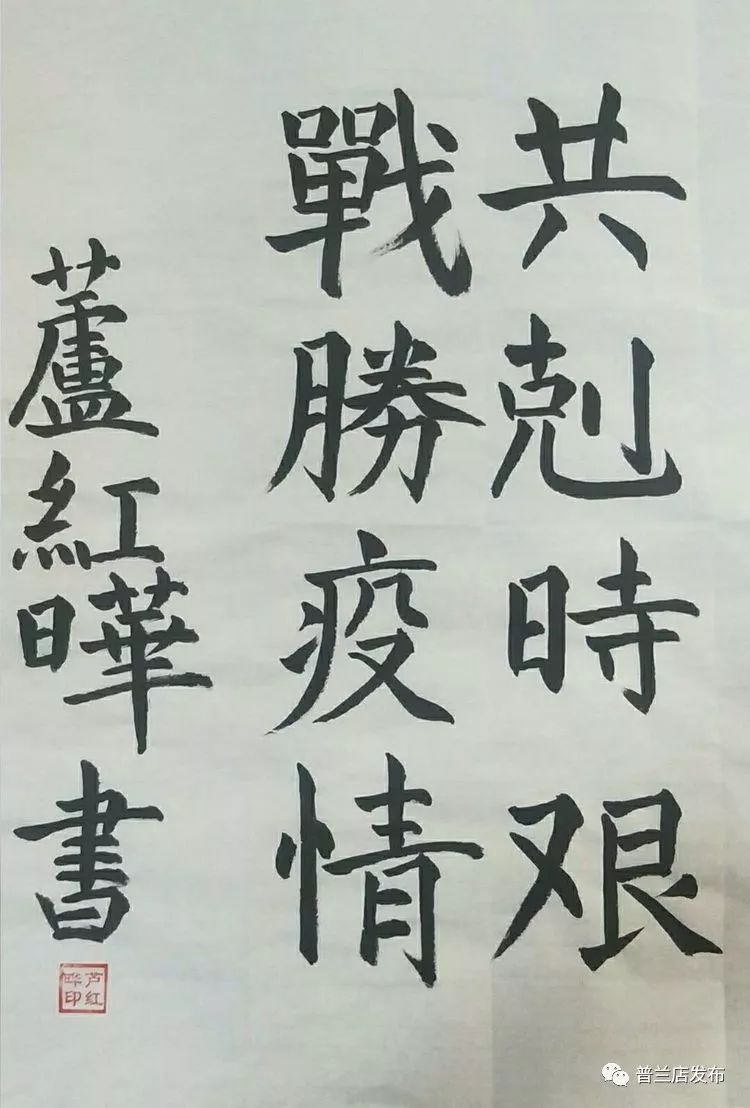 共剋時艰
戰勝疫情
蘆紅曄書
芦红
晔印
普兰店发布